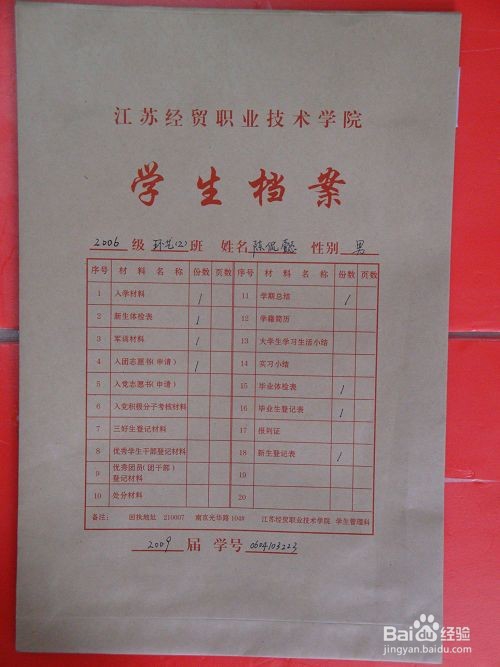 江苏经贸职业技术学院
学生档案
2006 级 环艺(2) 班 姓名 陈 性别 男
序号 材料名称 份数 页数 序号 材料名称 份数 页数
1 入学材料 1 11 学期总结 1
2 新生体检表 1 12 学籍简历
3 军训材料 1 13 大学生学习生活小结
4 入团志愿书(申请) 1 14 实习小结
5 入党志愿书(申请) 15 毕业体检表 1
6 入党积极分子考核材料 16 毕业生登记表 1
7 三好生登记材料 17 报到证
8 优秀学生干部登记材料 18 新生登记表 1
9 优秀团员(团干部)登记材料 19
10 处分材料 20
备注: 回执地址 210007 南京光华路104# 江苏经贸职业技术学院 学生管理科
2009 届 学号 0604103223
Baidu经验
jingyan.baidu.com